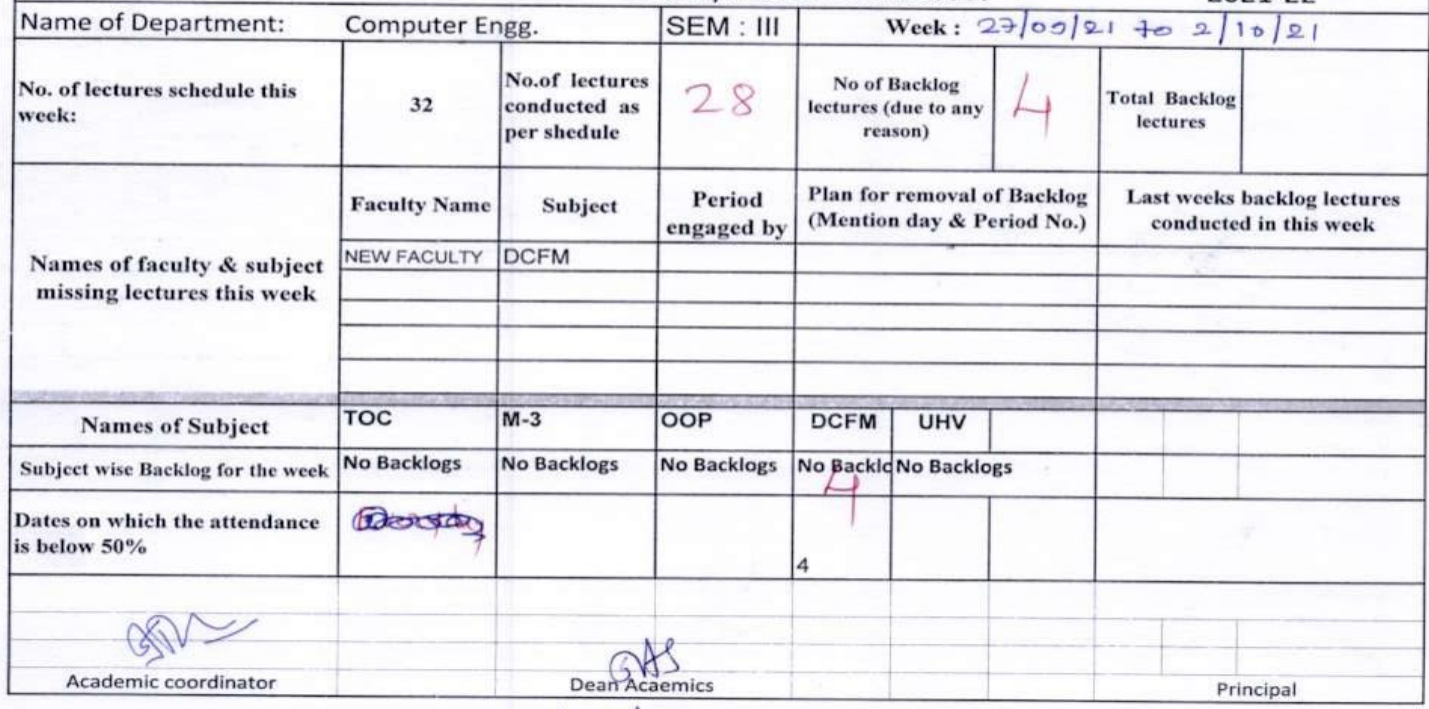 Name of Department: Computer Engg. SEM : III Week : 27/09/21 to 2/10/21
No. of lectures schedule this week: 32 No.of lectures conducted as per shedule 28 No of Backlog lectures (due to any reason) 4 Total Backlog lectures
Names of faculty & subject missing lectures this week
Faculty Name Subject Period engaged by Plan for removal of Backlog (Mention day & Period No.) Last weeks backlog lectures conducted in this week
NEW FACULTY DCFM
Names of Subject TOC M-3 OOP DCFM UHV
Subject wise Backlog for the week No Backlogs No Backlogs No Backlogs No Backlo No Backlogs
4
Dates on which the attendance is below 50%
4
Academic coordinator Dean Acaemics Principal